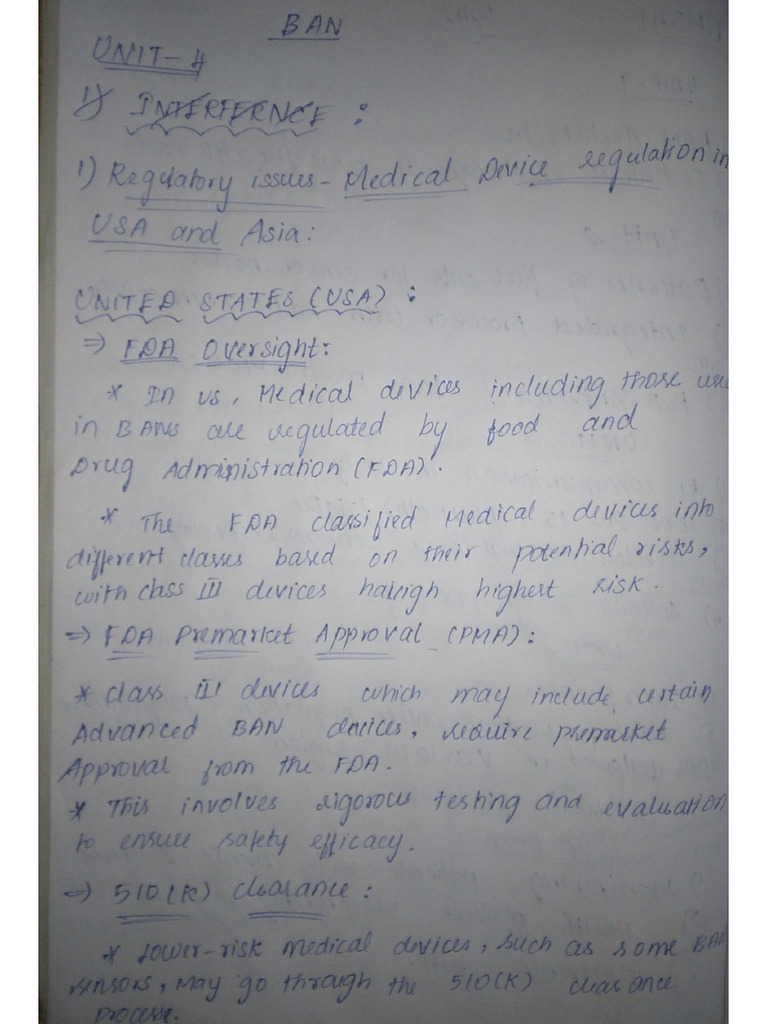 BAN
UNIT-4
1) INTERFERENCE :
1) Regulatory issues - Medical Device regulation in
USA and Asia:
UNITED STATES (USA) :
⇒ FDA Oversight:
* In us, Medical devices including those use
in BANs are regulated by food and
Drug Administration (FDA).
* The FDA classified Medical devices into
different classes based on their potential risks,
with class III devices highest risk.
⇒ FDA Premarket Approval (PMA) :
* class III devices which may include certain
Advanced BAN devices, require premarket
Approval from the FDA.
* This involves rigorous testing and evaluation
to ensure safety efficacy.
⇒ 510(K) clearance :
* Lower-risk medical devices, such as some BAN
sensors, may go through the 510(K) clearance
process.